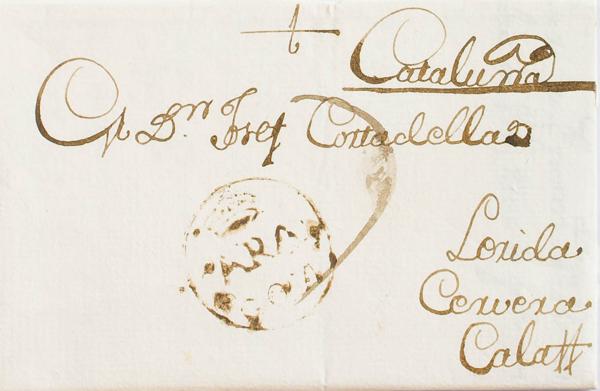 Cataluña
A Dn Josef Cortadellas
Lerida
Cervera
Calaff